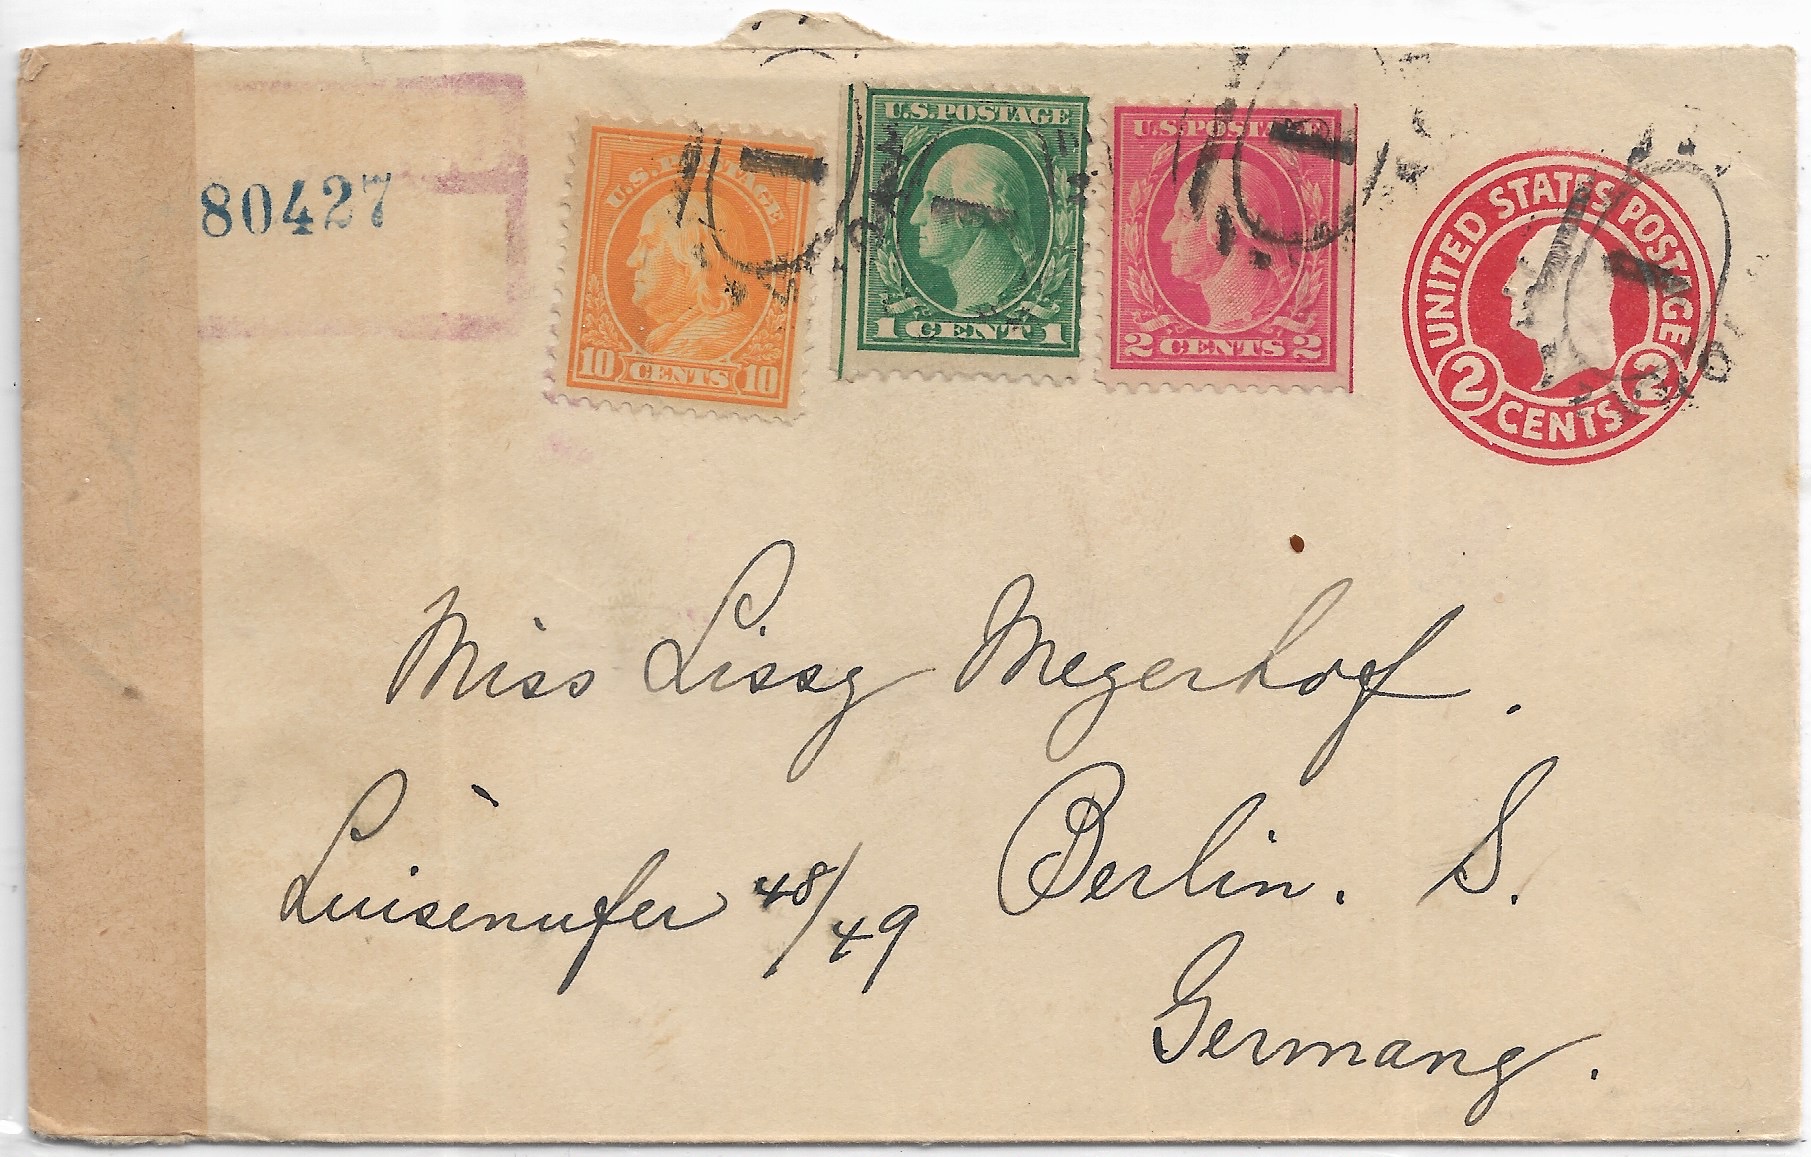 80427
U.S. POSTAGE
10 CENTS 10
U.S. POSTAGE
1 CENT 1
U.S. POSTAGE
2 CENTS 2
UNITED STATES POSTAGE
2 CENTS 2
Miss Lissy Meyerhof.
Luisenufer 48/49 Berlin. S.
Germany.